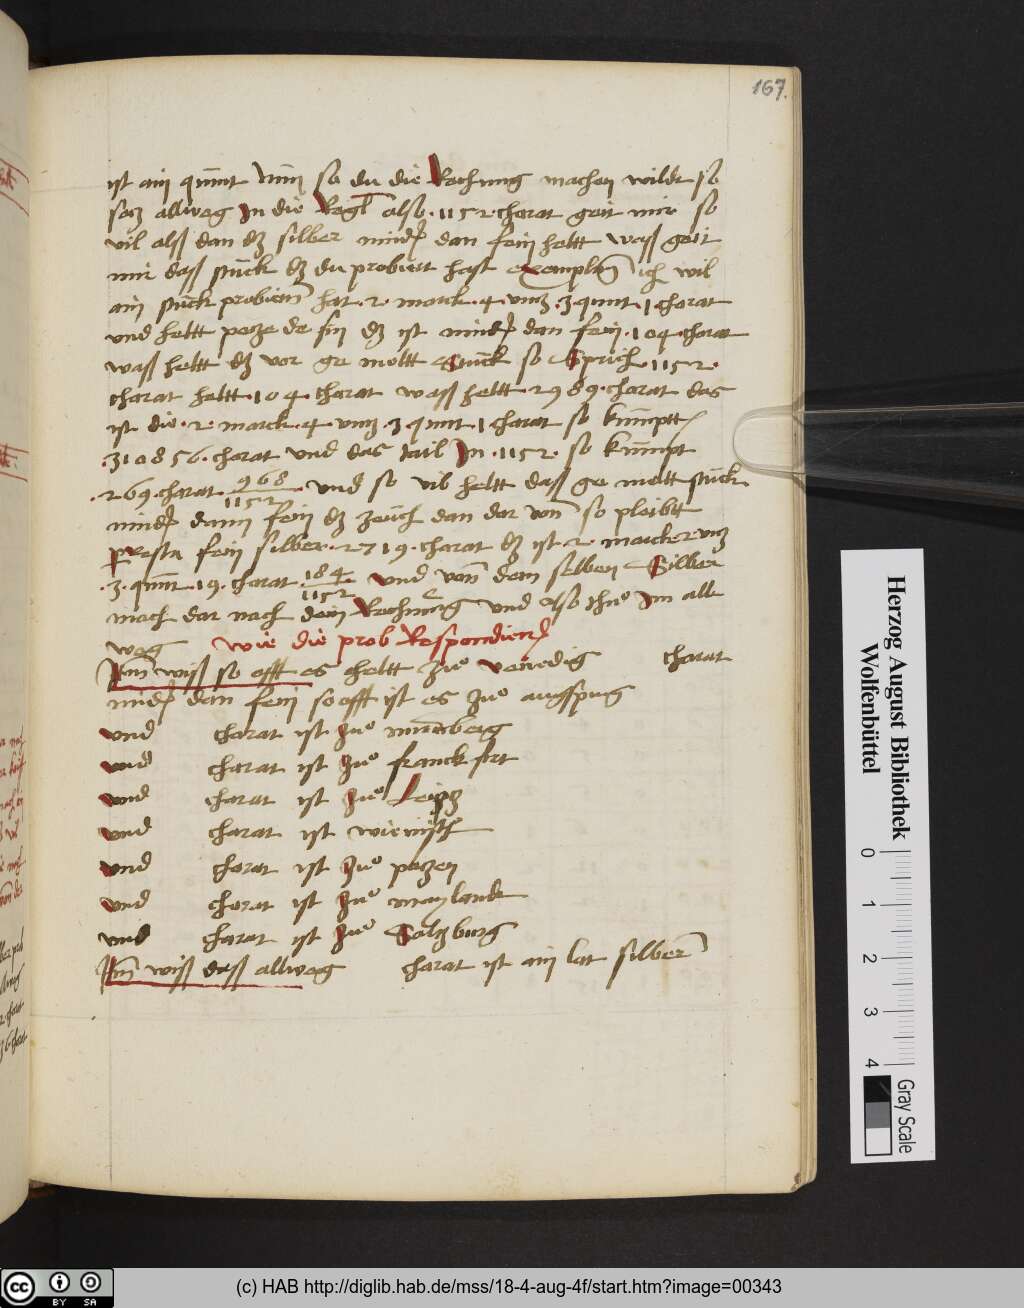 167.
ist ain quint Nun so du die Rechnung machen wildt so
secz allweg In die Regl also · 1152 · charat geit mir so
vil alß dan dz silber mind' dan fein heltt waß geit
mir daß stuck dz du probiert hast exemplum ich wil
ain stuck probiern hat · 2 · marck · 4 · vncz · 3 quint · 1 charat
vnd heltt pecze de fin dz ist mind' dan fein · 104 · charat
waß heltt dz vor ge meltt Stuck so Sprich · 1152 ·
charat heltt · 104 · charat waß heltt · 2989 · charat das
ist die · 2 · marck · 4 · vncz · 3 quint · 1 charat so kumptt
· 310856 · charat vnd das tail In · 1152 · so kumpt
· 269 · charat 968/1152 · vnd so vil heltt daß ge meltt stuck
mind' dann fein dz zeuch dan dar von so pleibtt
p resta fein silber · 2719 · charat dz ist · 2 · marck 2 vncz
· 3 · quint · 19 · charat 184/1152 vnd von dem selben Silber
mach dar nach dein Rechnung vnd also thue Im all
weg wie die prob Respondien'
Jtm wiß so offt es heltt zue venedig charat
mind' dan fein so offt ist es zue augspurg
vnd charat ist zue nurmberg
vnd charat ist zue franckfort
vnd charat ist zue Leipz
vnd charat ist wienisch
vnd charat ist zue peczen
vnd charat ist zue maylandt
vnd charat ist zue Salzburg
Jtm wiß daß allweg charat ist ain lat silber
Herzog August Bibliothek
Wolfenbüttel
0 1 2 3 4
Gray Scale
cc BY SA
(c) HAB http://diglib.hab.de/mss/18-4-aug-4f/start.htm?image=00343